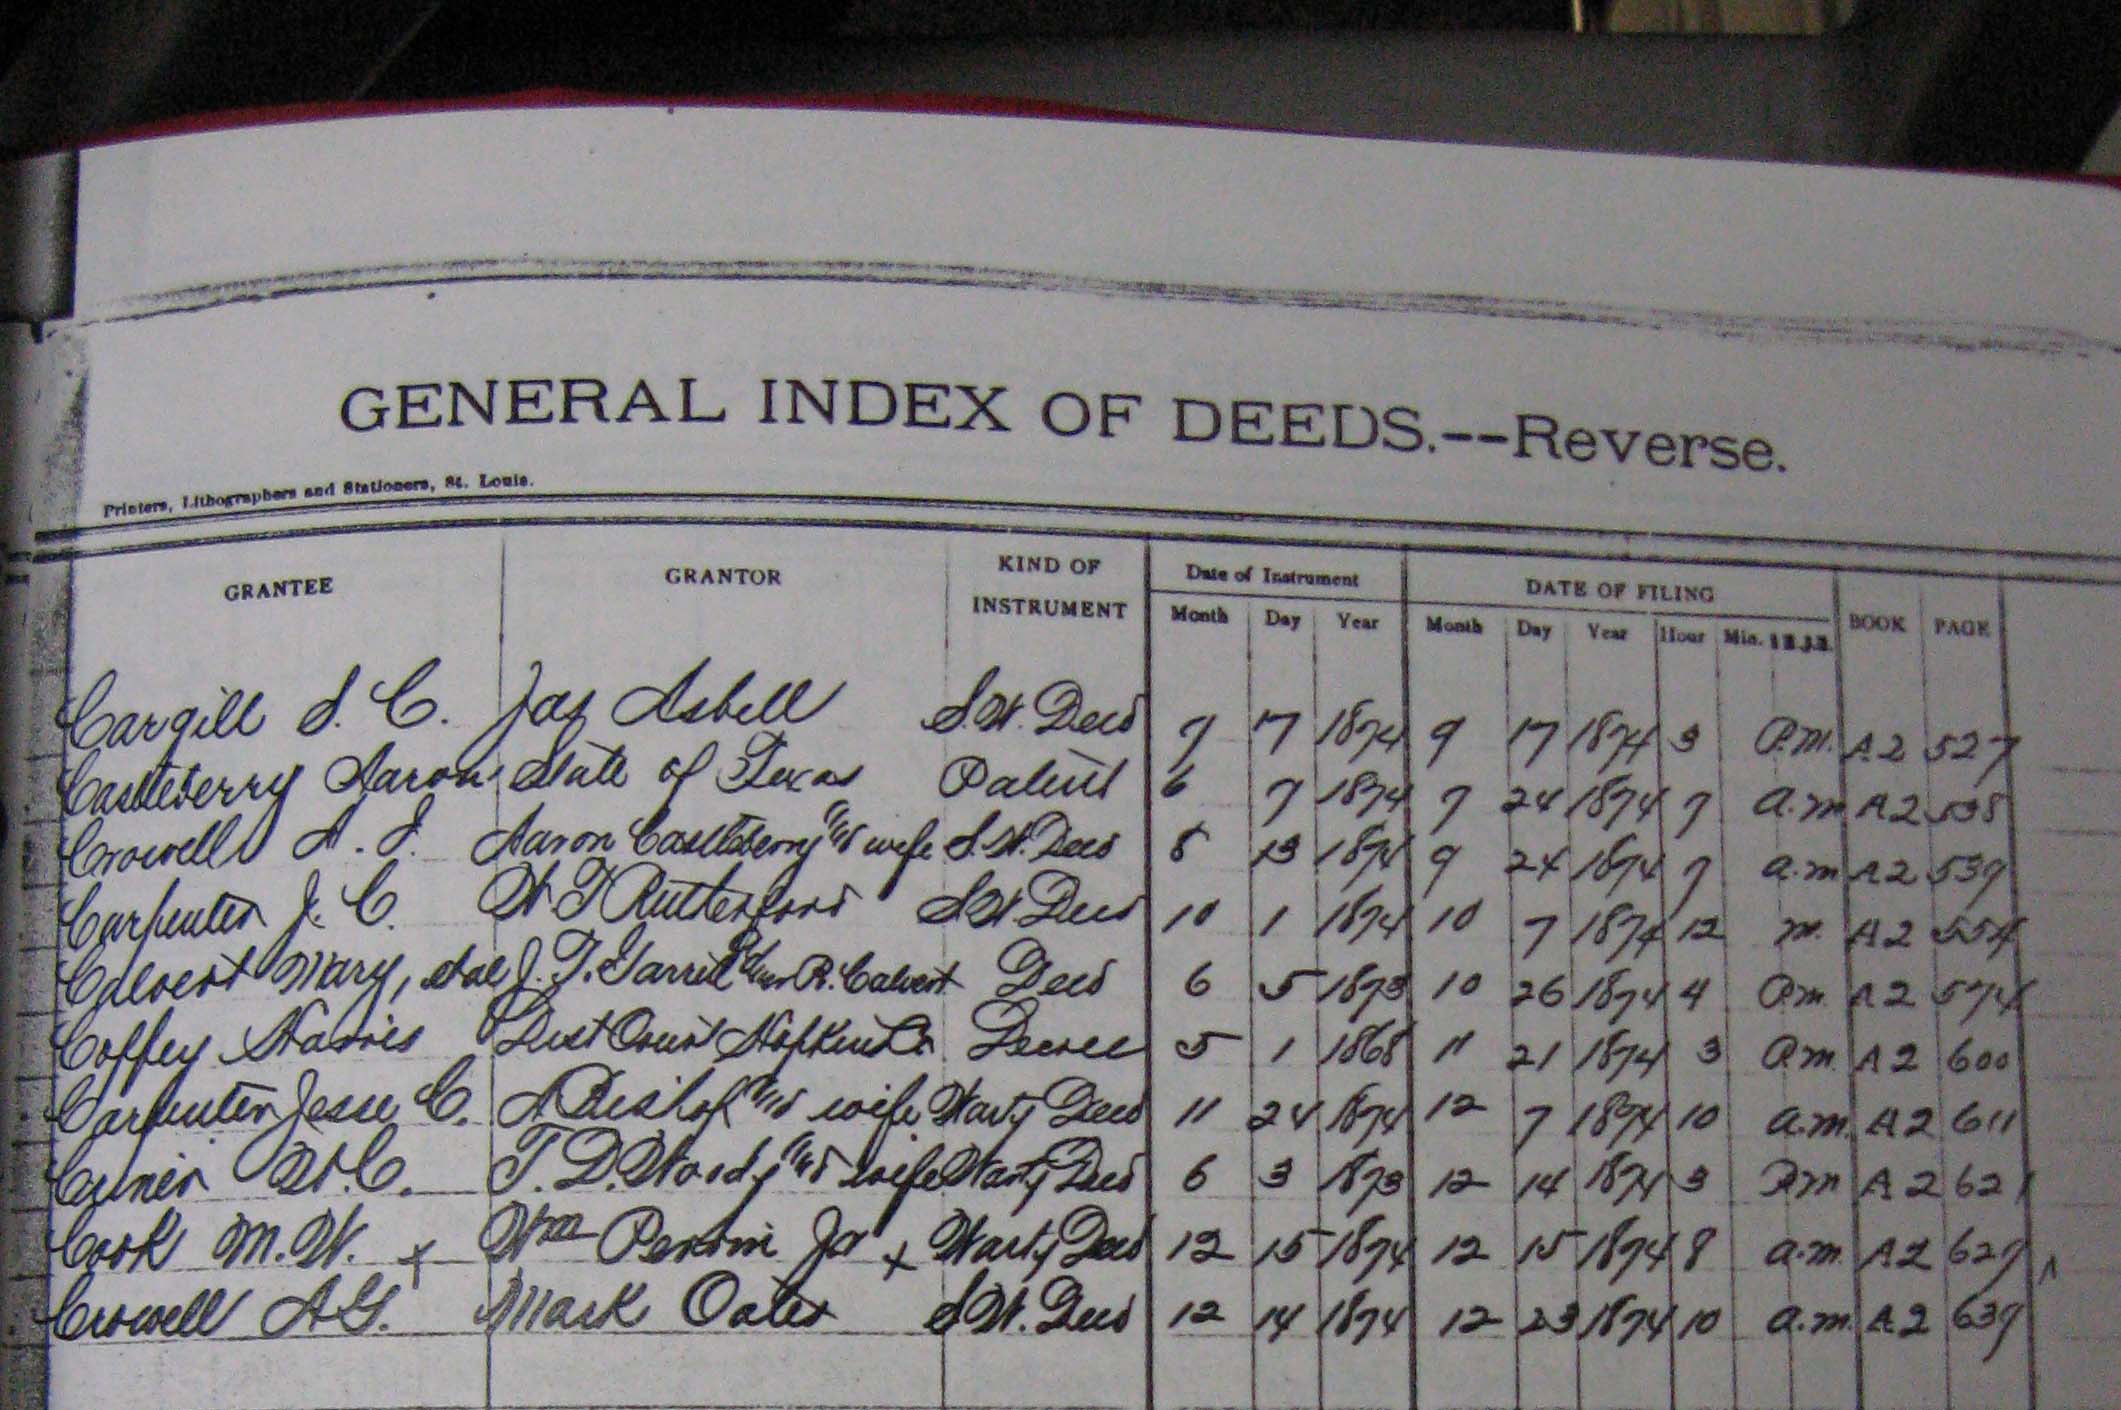 GENERAL INDEX OF DEEDS.--Reverse.
Printers, Lithographers and Stationers, St. Louis.
GRANTEE GRANTOR KIND OF INSTRUMENT Date of Instrument DATE OF FILING BOOK PAGE
Month Day Year Month Day Year Hour Min.
Cargill S. C. Jas Asbell S.W. Deed 9 17 1874 9 17 1874 3 P.M. A2 527
Castleberry Aaron State of Texas Patent 6 9 1874 9 24 1874 9 a.m A2 538
Crowell A. J. Aaron Castleberry and wife S.W. Deed 8 13 1874 9 24 1874 9 a.m A2 539
Carpenter J. C. W T Rutherford S.W. Deed 10 1 1874 10 7 1874 12 m. A2 554
Calvert Mary, et al J. T. Garrett R. Calvert Deed 6 5 1873 10 26 1874 4 P.m. A2 574
Coffey Harris Dist Court Hopkins Co Decree 5 1 1868 11 21 1874 3 P.m. A2 600
Carpenter Jesse C. A Bishop and wife Warty Deed 11 24 1874 12 7 1874 10 a.m. A2 611
W. C. T. D. Woody and wife Warty Deed 6 3 1873 12 14 1874 3 P.m A2 621
Cook M. W. x Wm Perrin Jr x Warty Deed 12 15 1874 12 15 1874 8 a.m. A2 629
Crowell A G. Mark Oates S.W. Deed 12 14 1874 12 23 1874 10 a.m. A2 639